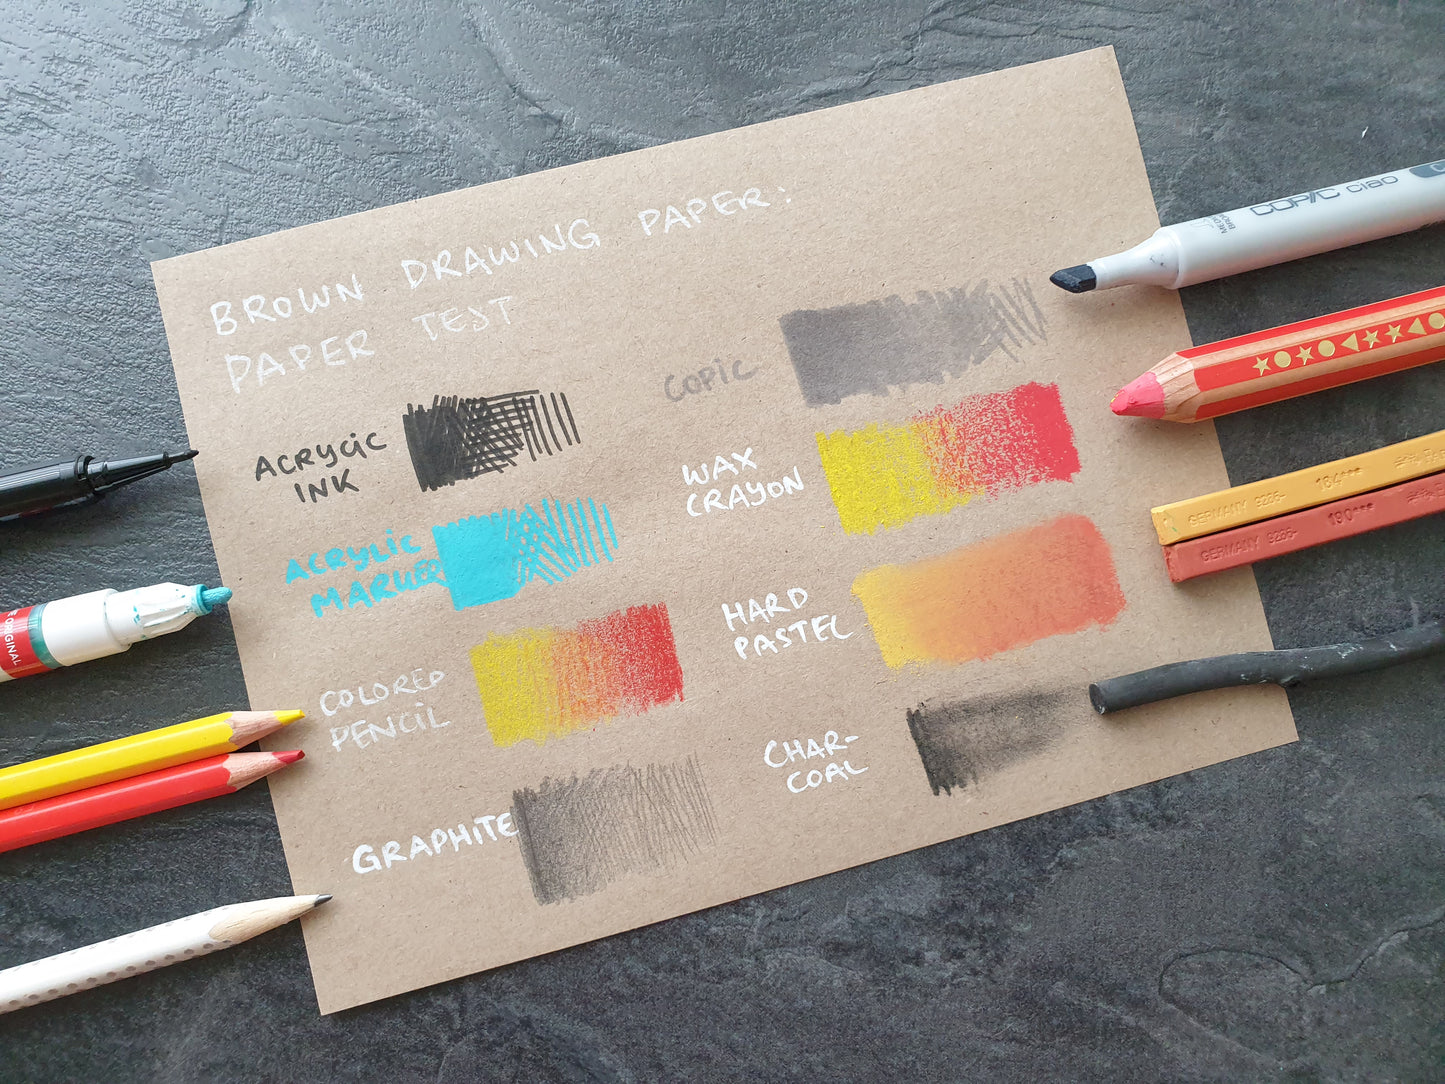 BROWN DRAWING PAPER:
PAPER TEST
ACRYLIC
INK
ACRYLIC
MARKER
COLORED
PENCIL
GRAPHITE
COPIC
WAX
CRAYON
HARD
PASTEL
CHAR-
COAL
ORIGINAL
COPIC ciao
GERMANY 9286- 184***
GERMANY 9286- 190***